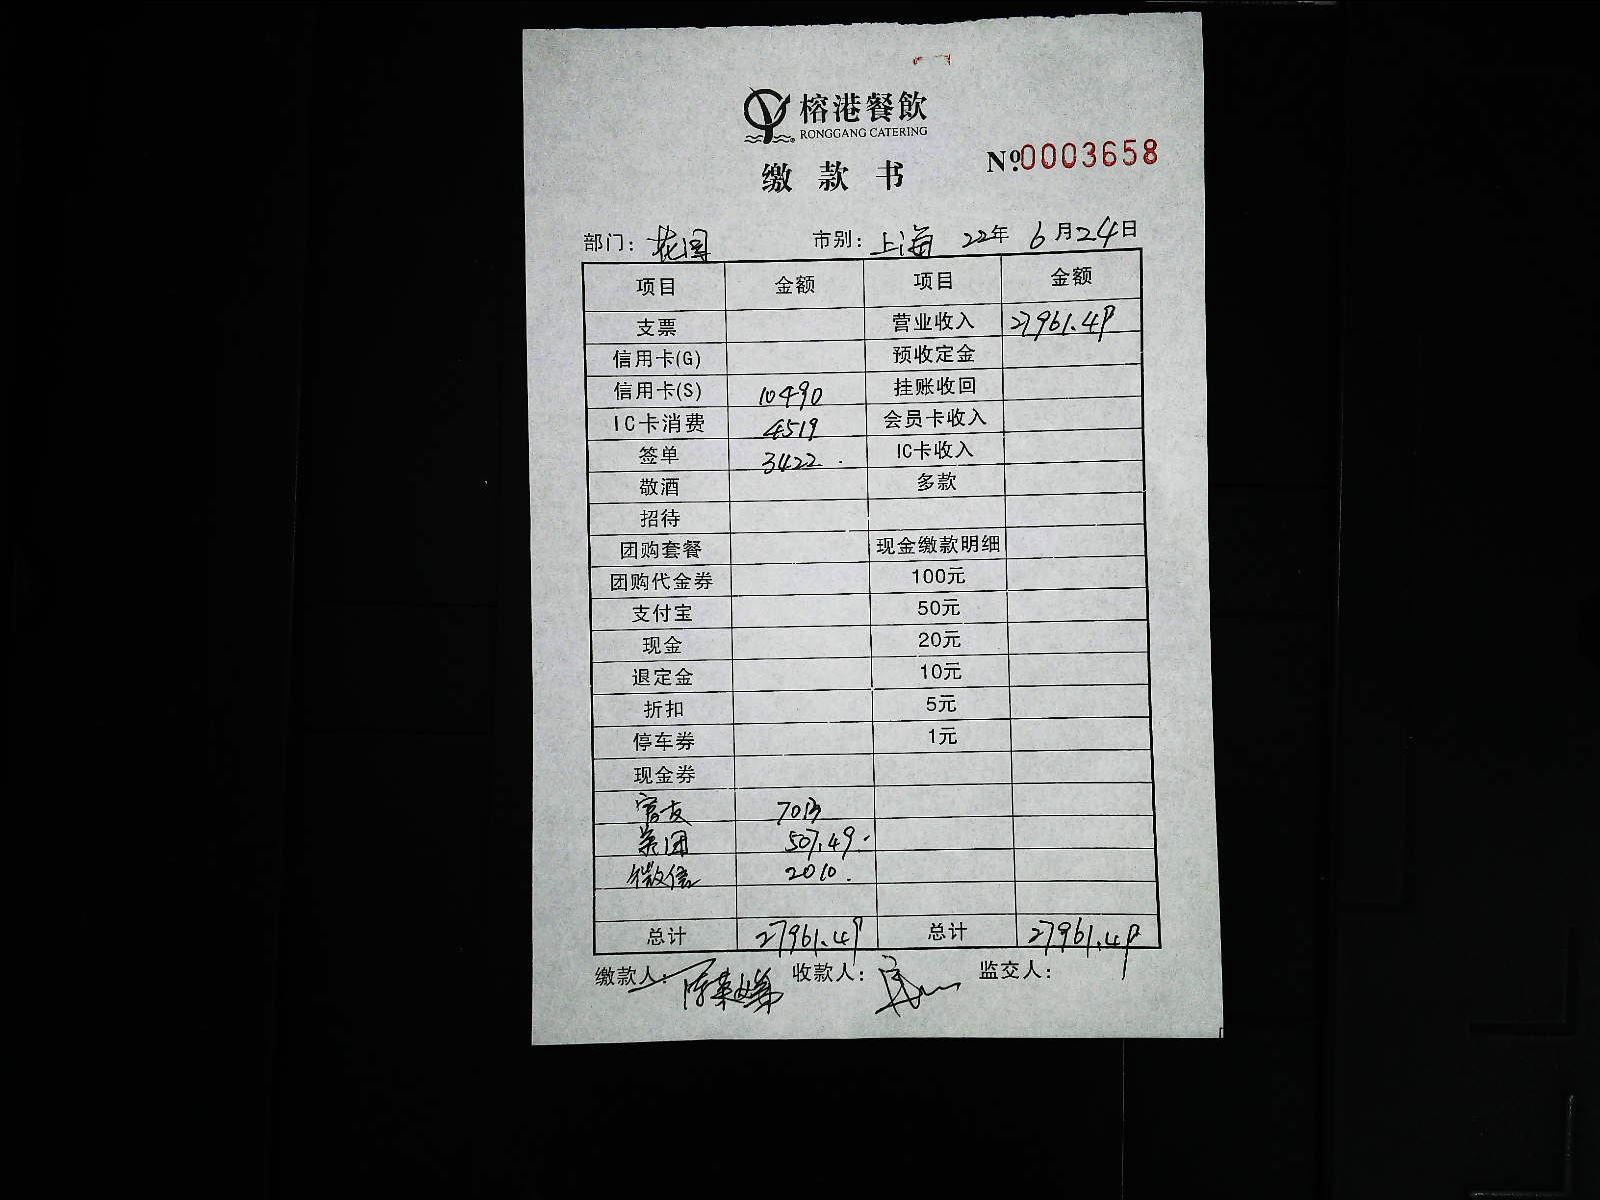 榕港餐飲
RONGGANG CATERING
缴款书
Nº.0003658
部门：花园 市别：上海 22年 6月24日
项目 金额 项目 金额
支票 营业收入 27961.49
信用卡(G) 预收定金
信用卡(S) 10490 挂账收回
IC卡消费 4519 会员卡收入
签单 3422. IC卡收入
敬酒 多款
招待
团购套餐 现金缴款明细
团购代金券 100元
支付宝 50元
现金 20元
退定金 10元
折扣 5元
停车券 1元
现金券
7013
集团 507.49.
微信 2010.
总计 27961.49 总计 27961.49
缴款人： 收款人： 监交人：